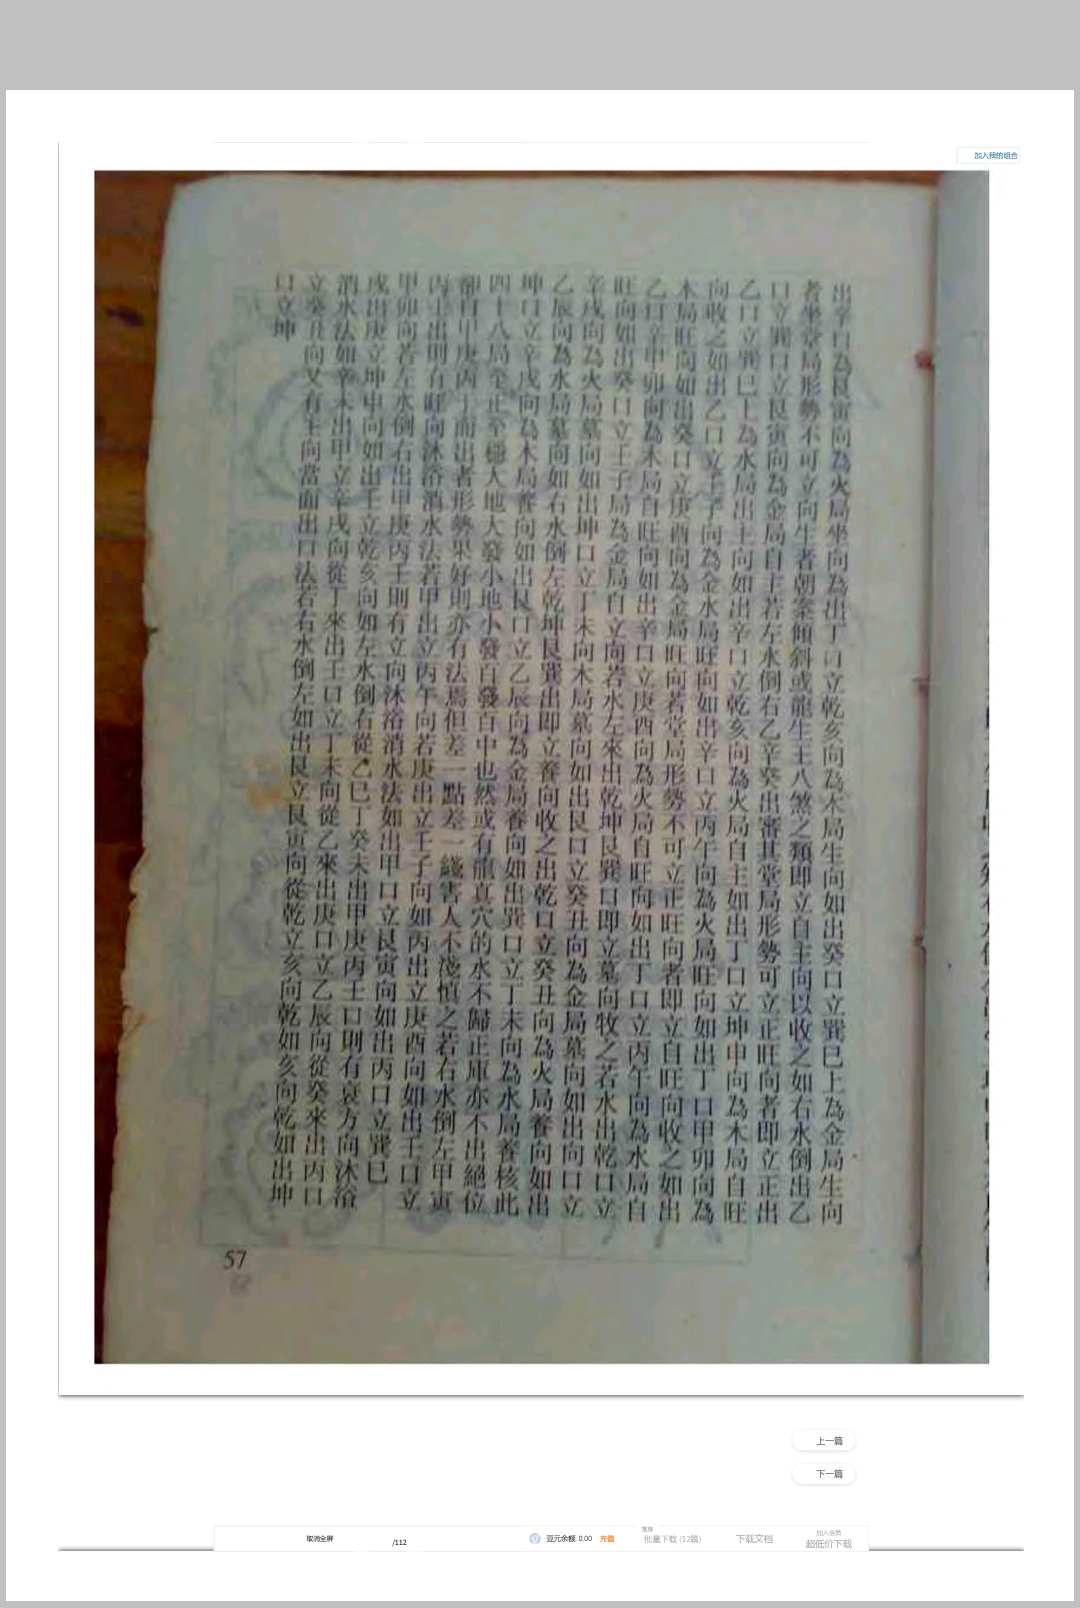 加入我的组合
出辛口為艮寅向為火局坐向為出丁口立乾亥向為木局生向如出癸口立巽巳上為金局生向
者坐堂局形勢不可立向生者朝案傾斜或龍生王八煞之類即立自主向以收之如右水倒出乙
口立巽口立艮寅向為金局自主若左水倒右乙辛癸出審其堂局形勢可立正旺向者即立正出
乙口立巽巳上為水局出主向如出辛口立乾亥向為火局自主如出丁口立坤申向為木局自旺
向收之如出乙口立壬子向為金水局旺向如出辛口立丙午向為火局旺向如出丁口甲卯向為
木局旺向如出癸口立庚酉向為金局旺向若堂局形勢不可立正旺向者即立自旺向收之如出
乙口辛甲卯向為木局自旺向如出辛口立庚酉向為火局自旺向如出丁口立丙午向為水局自
旺向如出癸口立王子局為金局自立向若水左來出乾坤艮巽口即立墓向牧之若水出乾口立
辛戌向為火局墓向如出坤口立丁未向木局墓向如出艮口立癸丑向為金局墓向如出向口立
乙辰向為水局墓向如右水倒左乾坤艮巽出即立養向收之出乾口立癸丑向為火局養向如出
坤口立辛戌向為木局養向如出艮口立乙辰向為金局養向如出巽口立丁未向為水局養核此
四十八局全止至穩大地大發小地小發百發百中也然或有龍真穴的水不歸正庫亦不出絕位
都自甲庚丙丁而出者形勢果好則亦有法焉但差一點差一綫害人不淺慎之若右水倒左甲寅
丙壬出則有旺向沐浴消水法若甲出立丙午向若庚出立王子向如丙出立庚酉向如出壬口立
甲卯向若左水倒右出甲庚丙壬則有立向沐浴消水法如出甲口立艮寅向如出丙口立巽巳
戌出庚立坤申向如出壬立乾亥向如左水倒右從乙巳丁癸夫出甲庚丙王口則有衰方向沐浴
消水法如辛未出甲立辛戌向從丁來出王口立丁未向從乙來出庚口立乙辰向從癸來出丙口
立癸丑向又有生向當面出口法若右水倒左如出艮立艮寅向從乾立亥向乾如亥向乾如出坤
口立坤
57
上一篇
下一篇
取消全屏
/112
豆元余额 0.00 充值
批量下载 (12篇)
下载文档
加入会员
超低价下载